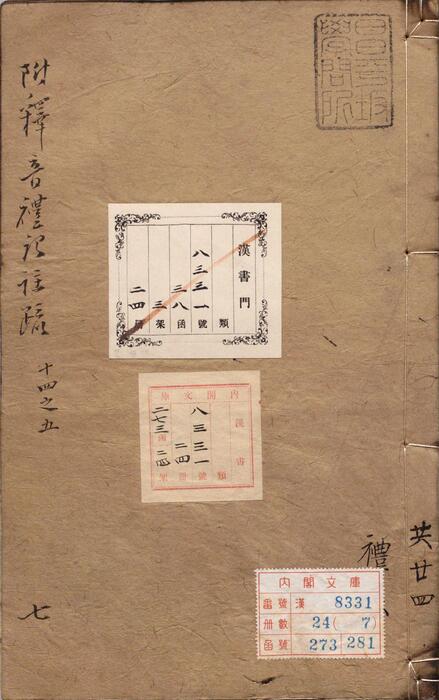 昌平坂
學問所
附釋音禮記註疏 十四之五
七
漢書門
類
八三三一號
三八函
三架
二四冊
內閣文庫
漢書
類
八三三一號
二四冊
二七三函
共廿四
禮
内閣文庫
番號 漢 8331
冊數 24( 7)
函號 273 281